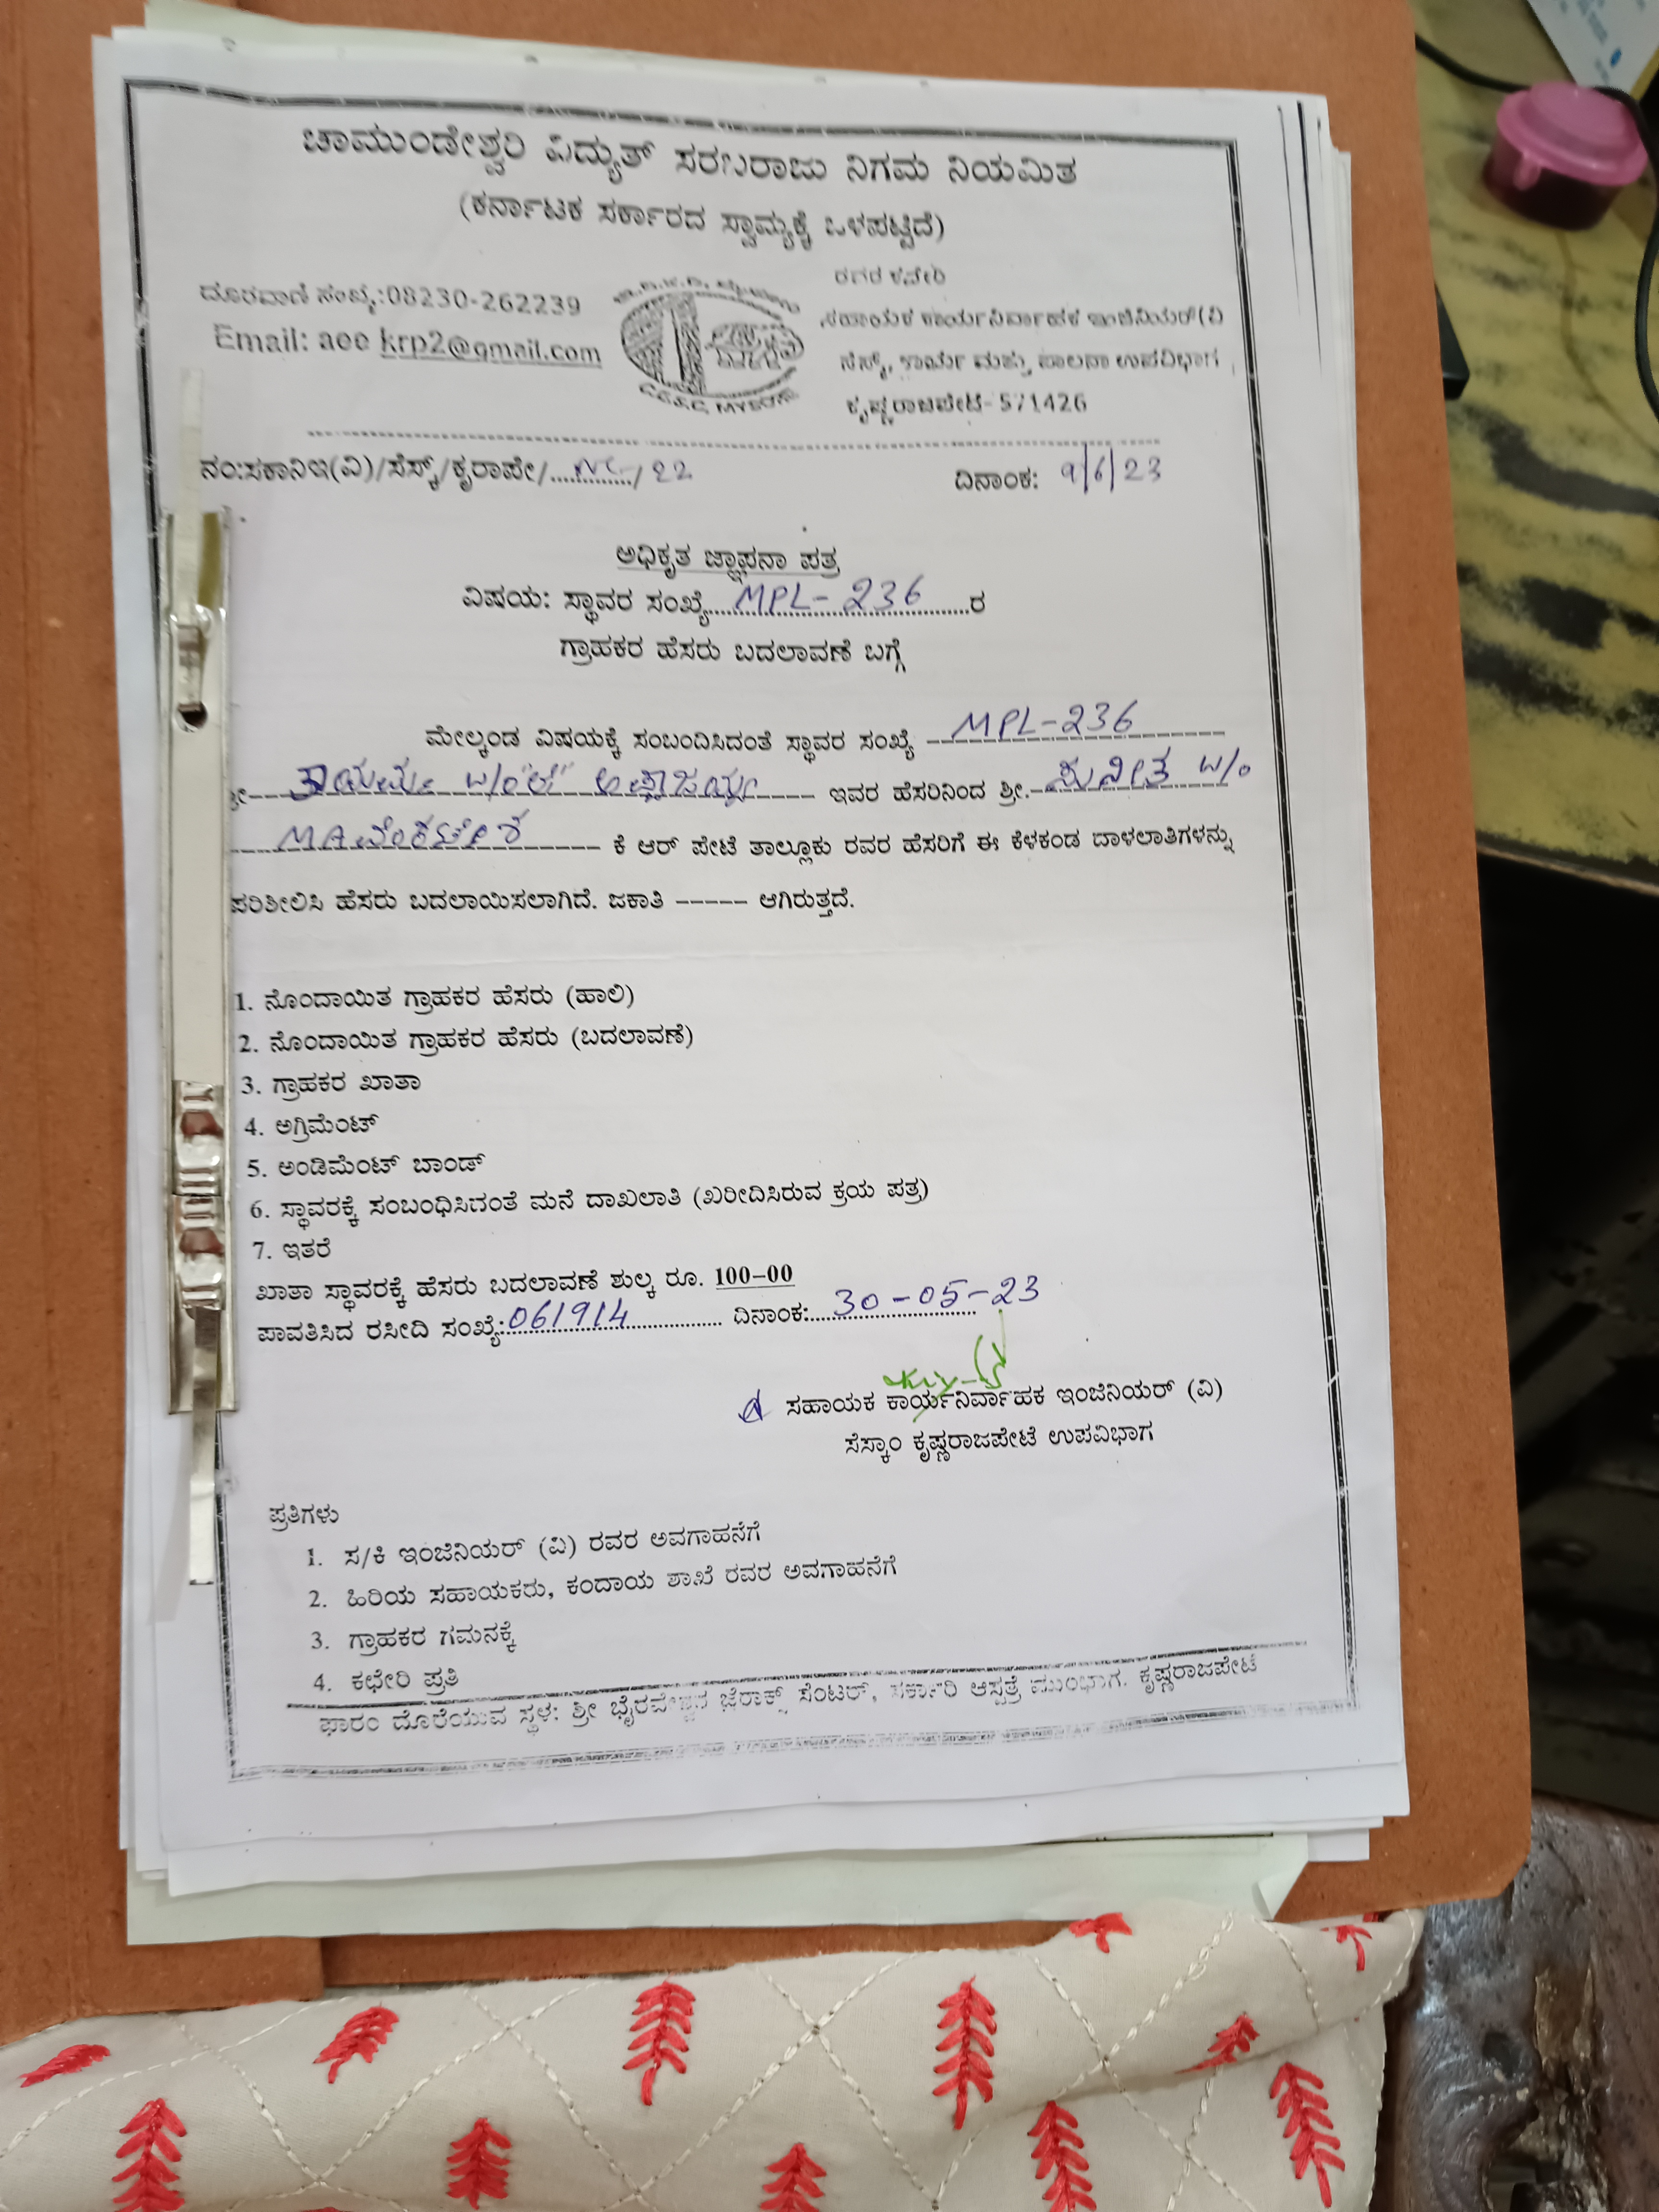 ಚಾಮುಂಡೇಶ್ವರಿ ವಿದ್ಯುತ್ ಸರಬರಾಜು ನಿಗಮ ನಿಯಮಿತ
(ಕರ್ನಾಟಕ ಸರ್ಕಾರದ ಸ್ವಾಮ್ಯಕ್ಕೆ ಒಳಪಟ್ಟಿದೆ)
ದೂರವಾಣಿ ಸಂಖ್ಯೆ:08230-262239
Email: aee krp2@gmail.com
C.E.S.C, MYSORE
ಸಹಾಯಕ ಕಾರ್ಯನಿರ್ವಾಹಕ ಇಂಜಿನಿಯರ್(ವಿ
ಸೆಸ್ಕ್, ಕಾರ್ಯ ಮತ್ತು ಪಾಲನಾ ಉಪವಿಭಾಗ
ಕೃಷ್ಣರಾಜಪೇಟೆ- 571426
ನಂ:ಸಕಾನಿಇ(ವಿ)/ಸೆಸ್ಕ್/ಕೃರಾಪೇ/............./22 ದಿನಾಂಕ: 9/6/23
ಅಧಿಕೃತ ಜ್ಞಾಪನಾ ಪತ್ರ
ವಿಷಯ: ಸ್ಥಾವರ ಸಂಖ್ಯೆ....MPL-236....ರ
ಗ್ರಾಹಕರ ಹೆಸರು ಬದಲಾವಣೆ ಬಗ್ಗೆ
ಮೇಲ್ಕಂಡ ವಿಷಯಕ್ಕೆ ಸಂಬಂದಿಸಿದಂತೆ ಸ್ಥಾವರ ಸಂಖ್ಯೆ MPL-236
ಶ್ರೀ W/o ಇವರ ಹೆಸರಿನಿಂದ ಶ್ರೀ. ಸುನೀತ W/o
MA ಕೆ ಆರ್ ಪೇಟೆ ತಾಲ್ಲೂಕು ರವರ ಹೆಸರಿಗೆ ಈ ಕೆಳಕಂಡ ದಾಳಲಾತಿಗಳನ್ನು
ಪರಿಶೀಲಿಸಿ ಹೆಸರು ಬದಲಾಯಿಸಲಾಗಿದೆ. ಜಕಾತಿ ----- ಆಗಿರುತ್ತದೆ.
1. ನೊಂದಾಯಿತ ಗ್ರಾಹಕರ ಹೆಸರು (ಹಾಲಿ)
2. ನೊಂದಾಯಿತ ಗ್ರಾಹಕರ ಹೆಸರು (ಬದಲಾವಣೆ)
3. ಗ್ರಾಹಕರ ಖಾತಾ
4. ಅಗ್ರಿಮೆಂಟ್
5. ಅಂಡಿಮೆಂಟ್ ಬಾಂಡ್
6. ಸ್ಥಾವರಕ್ಕೆ ಸಂಬಂಧಿಸಿದಂತೆ ಮನೆ ದಾಖಲಾತಿ (ಖರೀದಿಸಿರುವ ಕ್ರಯ ಪತ್ರ)
7. ಇತರೆ
ಖಾತಾ ಸ್ಥಾವರಕ್ಕೆ ಹೆಸರು ಬದಲಾವಣೆ ಶುಲ್ಕ ರೂ. 100-00
ಪಾವತಿಸಿದ ರಸೀದಿ ಸಂಖ್ಯೆ:061914 ದಿನಾಂಕ:30-05-23
ಸಹಾಯಕ ಕಾರ್ಯನಿರ್ವಾಹಕ ಇಂಜಿನಿಯರ್ (ವಿ)
ಸೆಸ್ಕಾಂ ಕೃಷ್ಣರಾಜಪೇಟೆ ಉಪವಿಭಾಗ
ಪ್ರತಿಗಳು
1. ಸ/ಕಿ ಇಂಜಿನಿಯರ್ (ವಿ) ರವರ ಅವಗಾಹನೆಗೆ
2. ಹಿರಿಯ ಸಹಾಯಕರು, ಕಂದಾಯ ಶಾಖೆ ರವರ ಅವಗಾಹನೆಗೆ
3. ಗ್ರಾಹಕರ ಗಮನಕ್ಕೆ
4. ಕಛೇರಿ ಪ್ರತಿ
ಫಾರಂ ದೊರೆಯುವ ಸ್ಥಳ: ಶ್ರೀ ಭೈರವೇಶ್ವರ ಜೆರಾಕ್ಸ್ ಸೆಂಟರ್, ಸರ್ಕಾರಿ ಆಸ್ಪತ್ರೆ ಮುಂಭಾಗ. ಕೃಷ್ಣರಾಜಪೇಟೆ